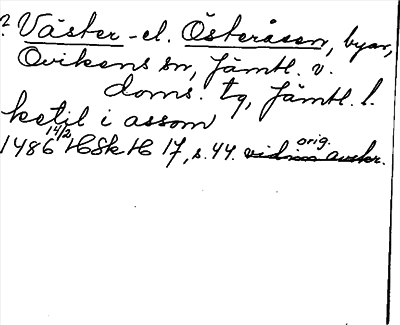 ? Väster- el. Österåsen, byar,
Ovikens sn, Jämtl. v.
doms. tg, Jämtl. l.
ketil i assom
1486 14/2 HSkH 17, s. 44. vidim avskr. orig.